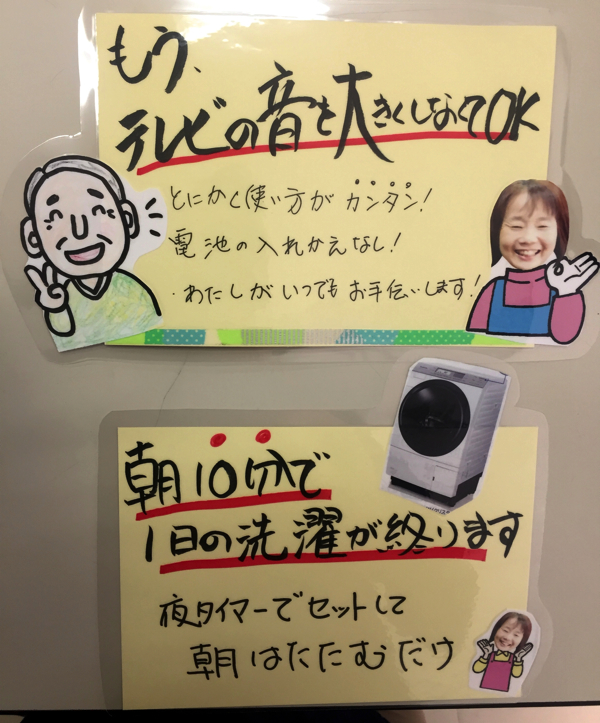 もう、
テレビの音を大きくしなくてOK
とにかく使い方がカンタン!
電池の入れかえなし!
・わたしがいつでもお手伝いします!
朝10分で
1日の洗濯が終ります
夜タイマーでセットして
朝はたたむだけ